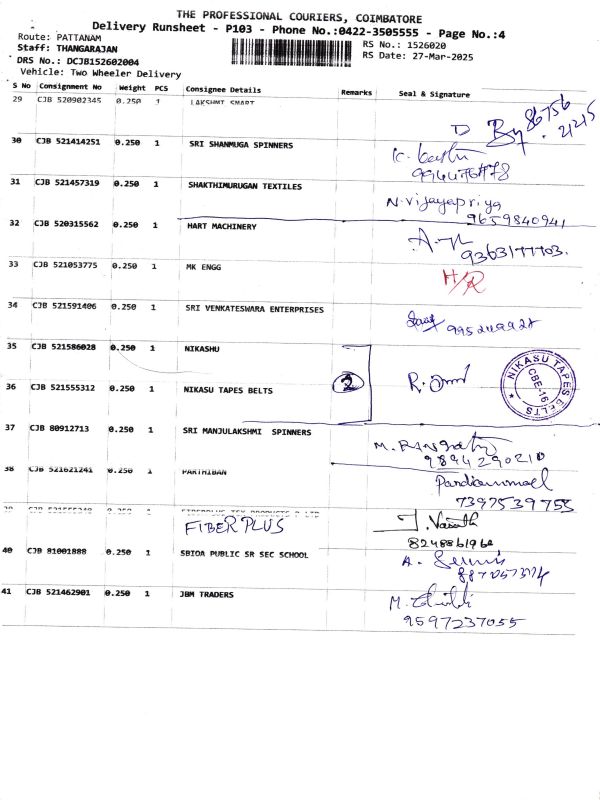 THE PROFESSIONAL COURIERS, COIMBATORE
Delivery Runsheet - P103 - Phone No.:0422-3505555 - Page No.:4
Route: PATTANAM
RS No.: 1526020
Staff: THANGARAJAN
RS Date: 27-Mar-2025
DRS No.: DCJB152602004
Vehicle: Two Wheeler Delivery
S No Consignment No Weight PCS Consignee Details Remarks Seal & Signature
29 CJB 520902345 0.250 1 LAKSHMI SMART
86756
21215
30 CJB 521414251 0.250 1 SRI SHANMUGA SPINNERS
31 CJB 521457319 0.250 1 SHAKTHIMURUGAN TEXTILES
N.vijayapriya
9659840941
32 CJB 520315562 0.250 1 HART MACHINERY
9363177703.
33 CJB 521053775 0.250 1 MK ENGG
H/R
34 CJB 521591406 0.250 1 SRI VENKATESWARA ENTERPRISES
35 CJB 521586028 0.250 1 NIKASHU
2
NIKASU TAPES BELTS
CBE-16
36 CJB 521555312 0.250 1 NIKASU TAPES BELTS
37 CJB 80912713 0.250 1 SRI MANJULAKSHMI SPINNERS
9894290210
38 CJB 521621241 0.250 1 PARTHIBAN
7397539755
FIBERPLUS
J. Vasanth
8248861966
40 CJB 81001888 0.250 1 SBIOA PUBLIC SR SEC SCHOOL
41 CJB 521462901 0.250 1 JBM TRADERS
9597237055